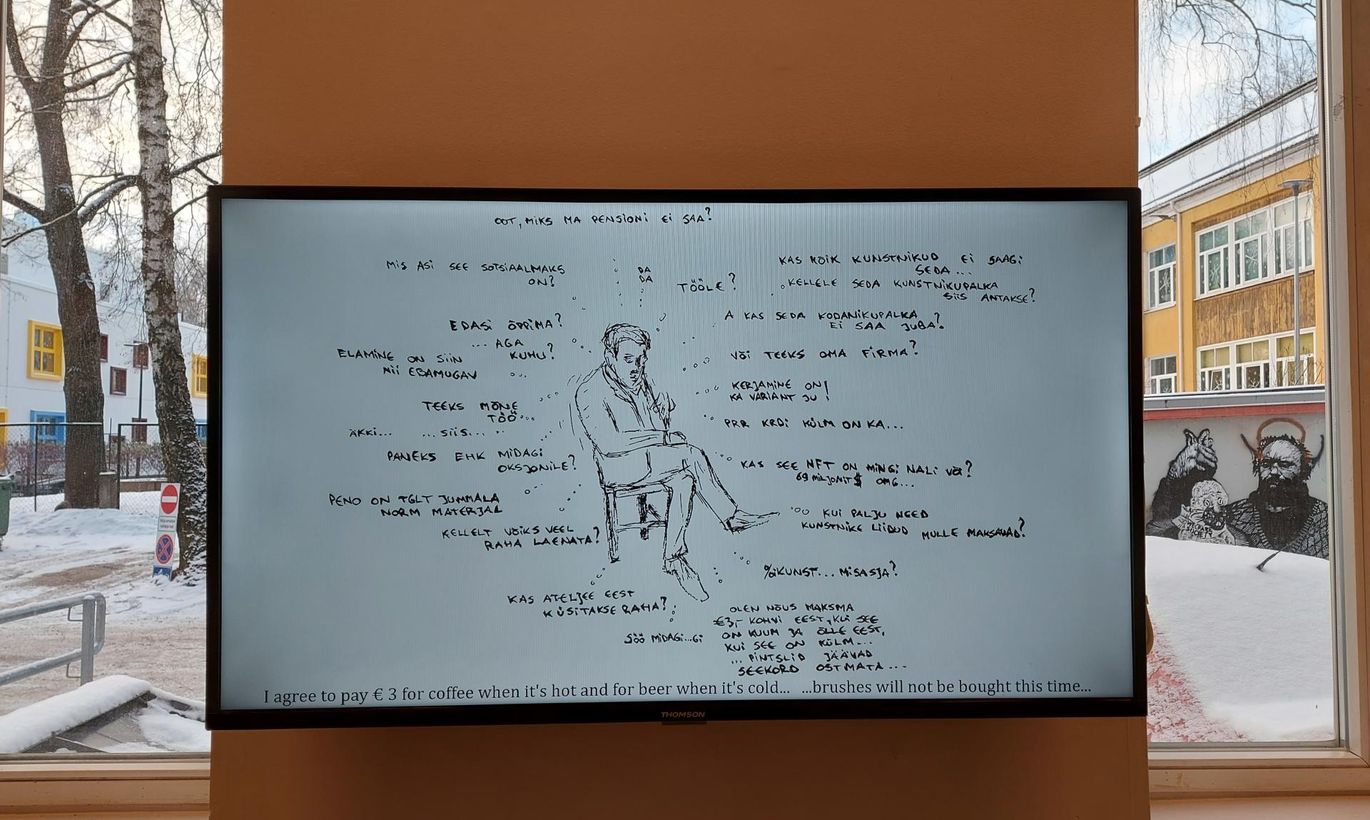 OOT, MIKS MA PENSIONI EI SAA?
MIS ASI SEE SOTSIAALMAKS
ON?
DA
DA
TÖÖLE?
KAS KÕIK KUNSTNIKUD EI SAAGI
SEDA...
KELLELE SEDA KUNSTNIKUPALKA
SIIS ANTAKSE?
A KAS SEDA KODANIKUPALKA
EI SAA JUBA?
EDASI ÕPPIMA?
... AGA
KUHU?
ELAMINE ON SIIN
NII EBAMUGAV
VÕI TEEKS OMA FIRMA?
KERJAMINE ON
KA VARIANT JU!
TEEKS MÕNE
TÖÖ...
ÄKKI... ...SIIS...
PRR KRDI KÜLM ON KA...
PANEKS EHK MIDAGI
OKSJONILE?
KAS SEE NFT ON MINGI NALI VÕI?
69 MILJONIT $ OMG...
PENO ON TGLT JUMMALA
NORM MATERJAL
KELLELT VÕIKS VEEL
RAHA LAENATA?
KUI PALJU NEED
KUNSTNIKE LIIDUD MULLE MAKSAVAD?
%KUNST... MISASJA?
KAS ATELJEE EEST
KÜSITAKSE RAHA?
SÖÖ MIDAGI...GI
OLEN NÕUS MAKSMA
€3,- KOHVI EEST, KUI SEE
ON KUUM JA ÕLLE EEST,
KUI SEE ON KÜLM...
... PINTSLID JÄÄVAD
SEEKORD OSTMATA...
I agree to pay € 3 for coffee when it's hot and for beer when it's cold... ...brushes will not be bought this time...
THOMSON